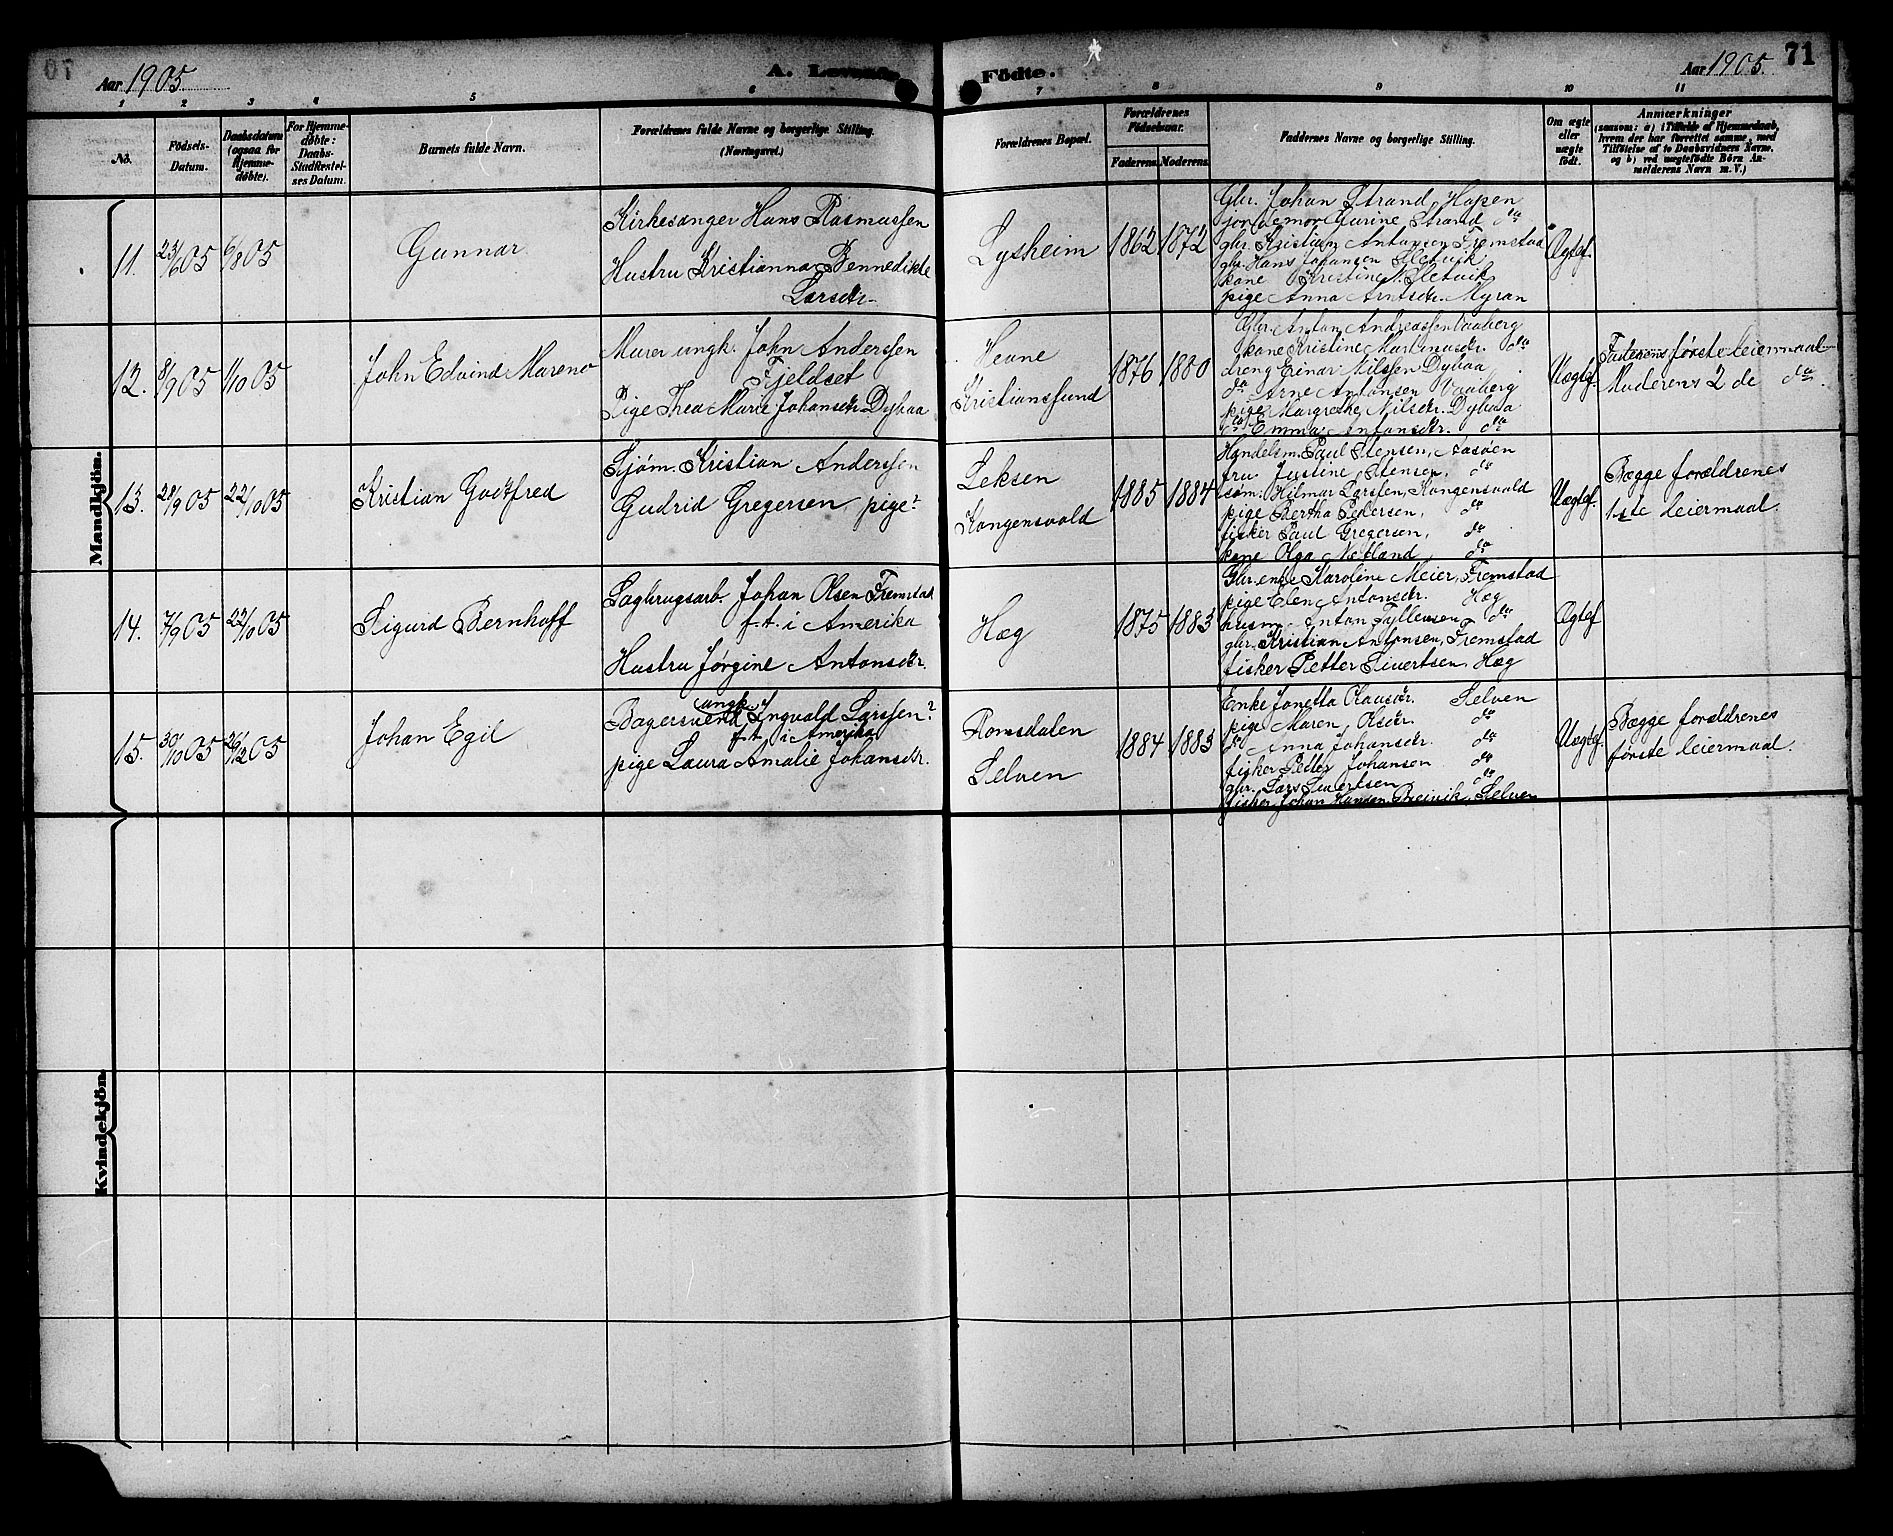 Aar 1905
A. Levende Födte.
Aar 1905
71
1 2 3 4 5 6 7 8 9 10 11
No.
Födsels-
Datum.
Daabsdatum
(ogsaa for
Hjemme-
döbte).
For Hjemme-
döbte:
Daabs-
Stadfæstel-
ses Datum.
Barnets fulde Navn.
Forældrenes fulde Navne og borgerlige Stilling.
(Næringsvei.)
Forældrenes Bopæl.
Forældrenes
Födselsaar.
Faderens. Moderens.
Faddernes Navne og borgerlige Stilling.
Om ægte
eller
uægte
födt.
Anmærkninger
(saasom: a) i Tilfælde af Hjemmedaab,
hvem der har forrettet samme, med
Tilföielse af to Daabsvidners Navne,
og b) ved uægtefödte Börn An-
melderens Navn m. V.)
Mandkjön.
11. 23/6 05 6/8 05
Gunnar
Kirkesanger Hans Rasmussen
Hustru Kristianna Bennedikte
Larsdr.
Lysheim
1862 1872
Gbr. Johan Strand, Hopen
jordemor Gurine Strand do
gbr. Kristian Antonsen Fremstad
gbr. Hans Johansen Sletvik
kone Kristine N. Sletvik
pige Anna Arntsdr. Myran
Ægtef.
12. 8/9 05 1/10 05
John Edvind Mareno
Murer ungk. John Anderssen
Fjeldset
Pige Thea Marie Johansdr. Dybaa
Hevne
Kristianssund
1876 1880
Gbr. Anton Andreassen Vaaberg
kone Kristine Martinusdr. do
dreng Einar Nilssen Dybaa,
do Arne Antonsen Vaaberg
pige Margrethe Nilsdr. Dybaa
do Emma Antonsdr. do
Uægtef.
Faderens første leiermaal
Moderens 2 de do.
13. 28/9 05 22/10 05
Kristian Godtfred
Sjøm. Kristian Anderssen
Gudrid Gregersen pige?
Leksen
Kongensvold
1885 1884
Handelsm. Paul Stensen, Aasöen
fru Justine Stensen, do
søm. Hilmar Larssen, Kongensvold
pige Bertha Pedersen, do
fisker Paul Gregersen, do
kone Olga Netland, do
Uægtef.
Bægge forældrenes
1ste leiermaal.
14. 7/9 05 22/10 05
Sigurd Bernhoff
Sagbrugsarb. Johan Olsen Fremstad
f. t. i Amerika
Hustru Jørgine Antonsdr.
Hæg
1875 1883
Gbr. enke Karoline Meier, Fremstad
pige Elen Antonsdr. Hæg
husm. Anton Tyllemsen do
gbr. Kristian Antonsen, Fremstad
fisker Petter Sivertsen, Hæg
Ægtef
15. 30/10 05 26/12 05
Johan Egil
ungk.
Bagersvend Ingvald Larssen?
f. t. i Amerika
pige Laura Amalie Johansdr.
Romsdalen
Selven
1884 1883
Enke Jonetta Olausdr. Selven
pige Maren Olsdr. do
do Anna Johansdr. do
fisker Petter Johansen do
gbr. Lars Sivertsen do
fisker Johan Hansen Breivik, Selven
Uægtef.
Bægge forældrenes
første leiermaal.
Kvindekjön.